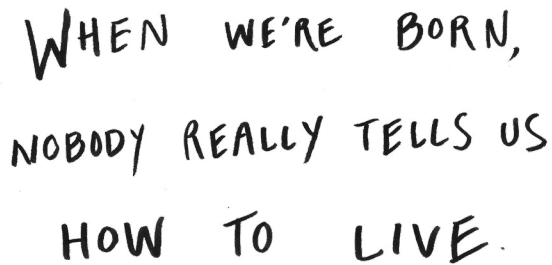 WHEN WE'RE BORN,
NOBODY REALLY TELLS US
HOW TO LIVE.